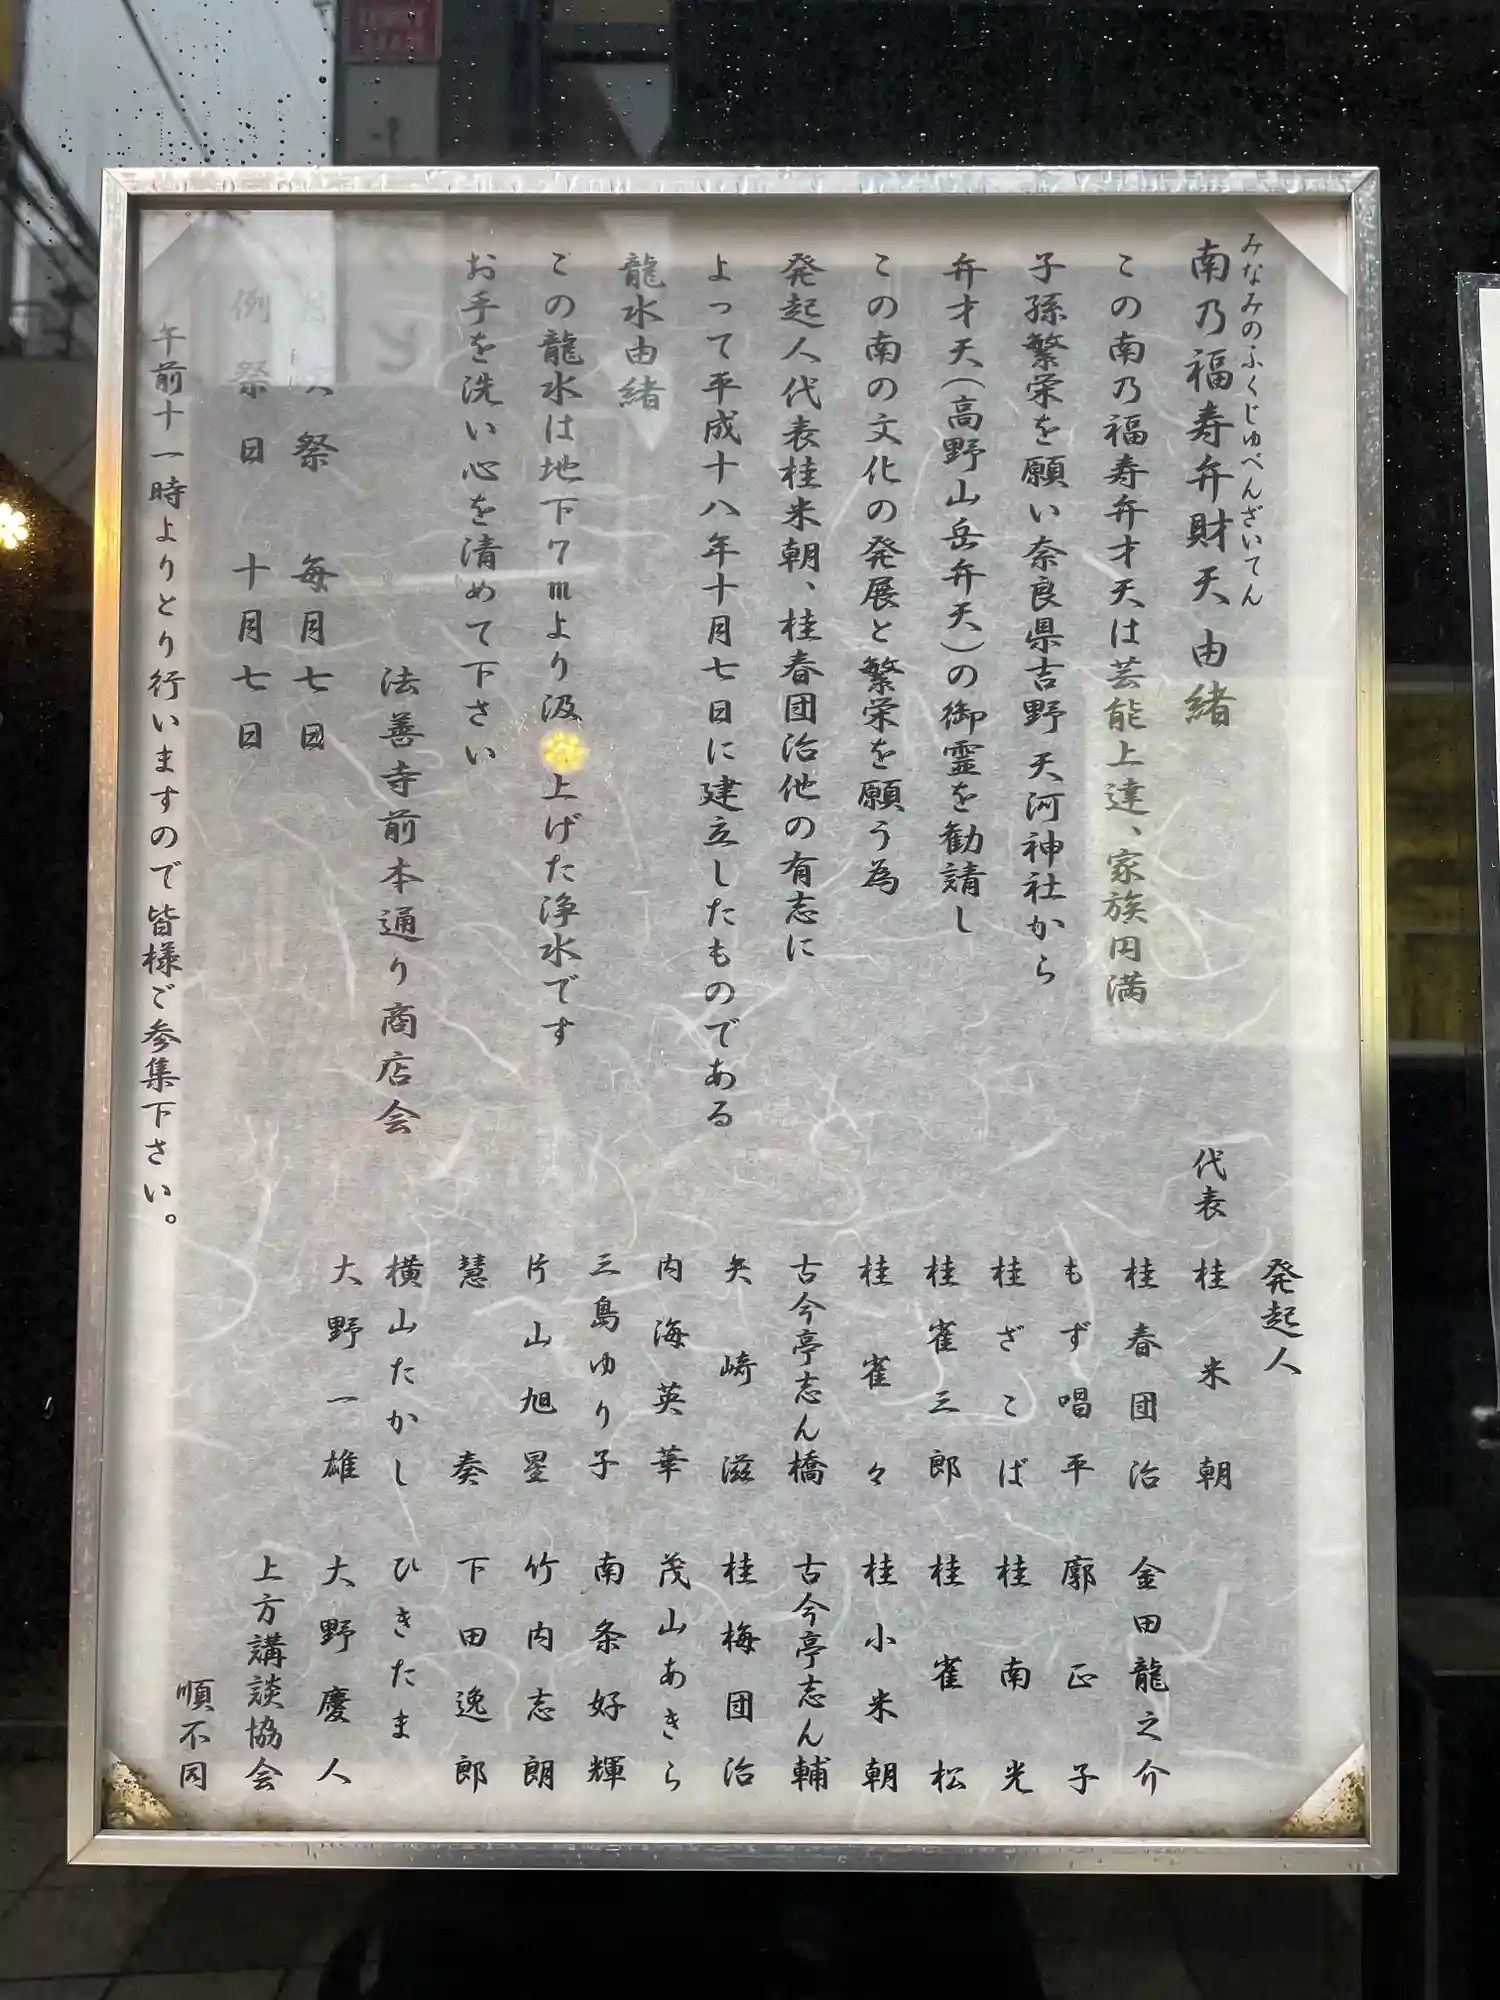 みなみのふくじゅべんざいてん
南乃福寿弁財天 由緒
この南乃福寿弁才天は芸能上達、家族円満
子孫繁栄を願い奈良県吉野 天河神社から
弁才天(高野山岳弁天)の御霊を勧請し
この南の文化の発展と繁栄を願う為
発起人代表桂米朝、桂春団治他の有志に
よって平成十八年十月七日に建立したものである
龍水由緒
この龍水は地下7mより汲上げた浄水です
お手を洗い心を清めて下さい
法善寺前本通り商店会
月次祭 毎月七日
例祭日 十月七日
午前十一時よりとり行いますので皆様ご参集下さい。
発起人
代表 桂米朝
桂春団治 金田龍之介
もず唱平 廓正子
桂ざこば 桂南光
桂雀三郎 桂雀松
桂雀々 桂小米朝
古今亭志ん橋 古今亭志ん輔
矢崎滋 桂梅団治
内海英華 茂山あきら
三島ゆり子 南条好輝
片山旭星 竹内志朗
慧奏 下田逸郎
横山たかし ひきたま
大野一雄 大野慶人
上方講談協会
順不同